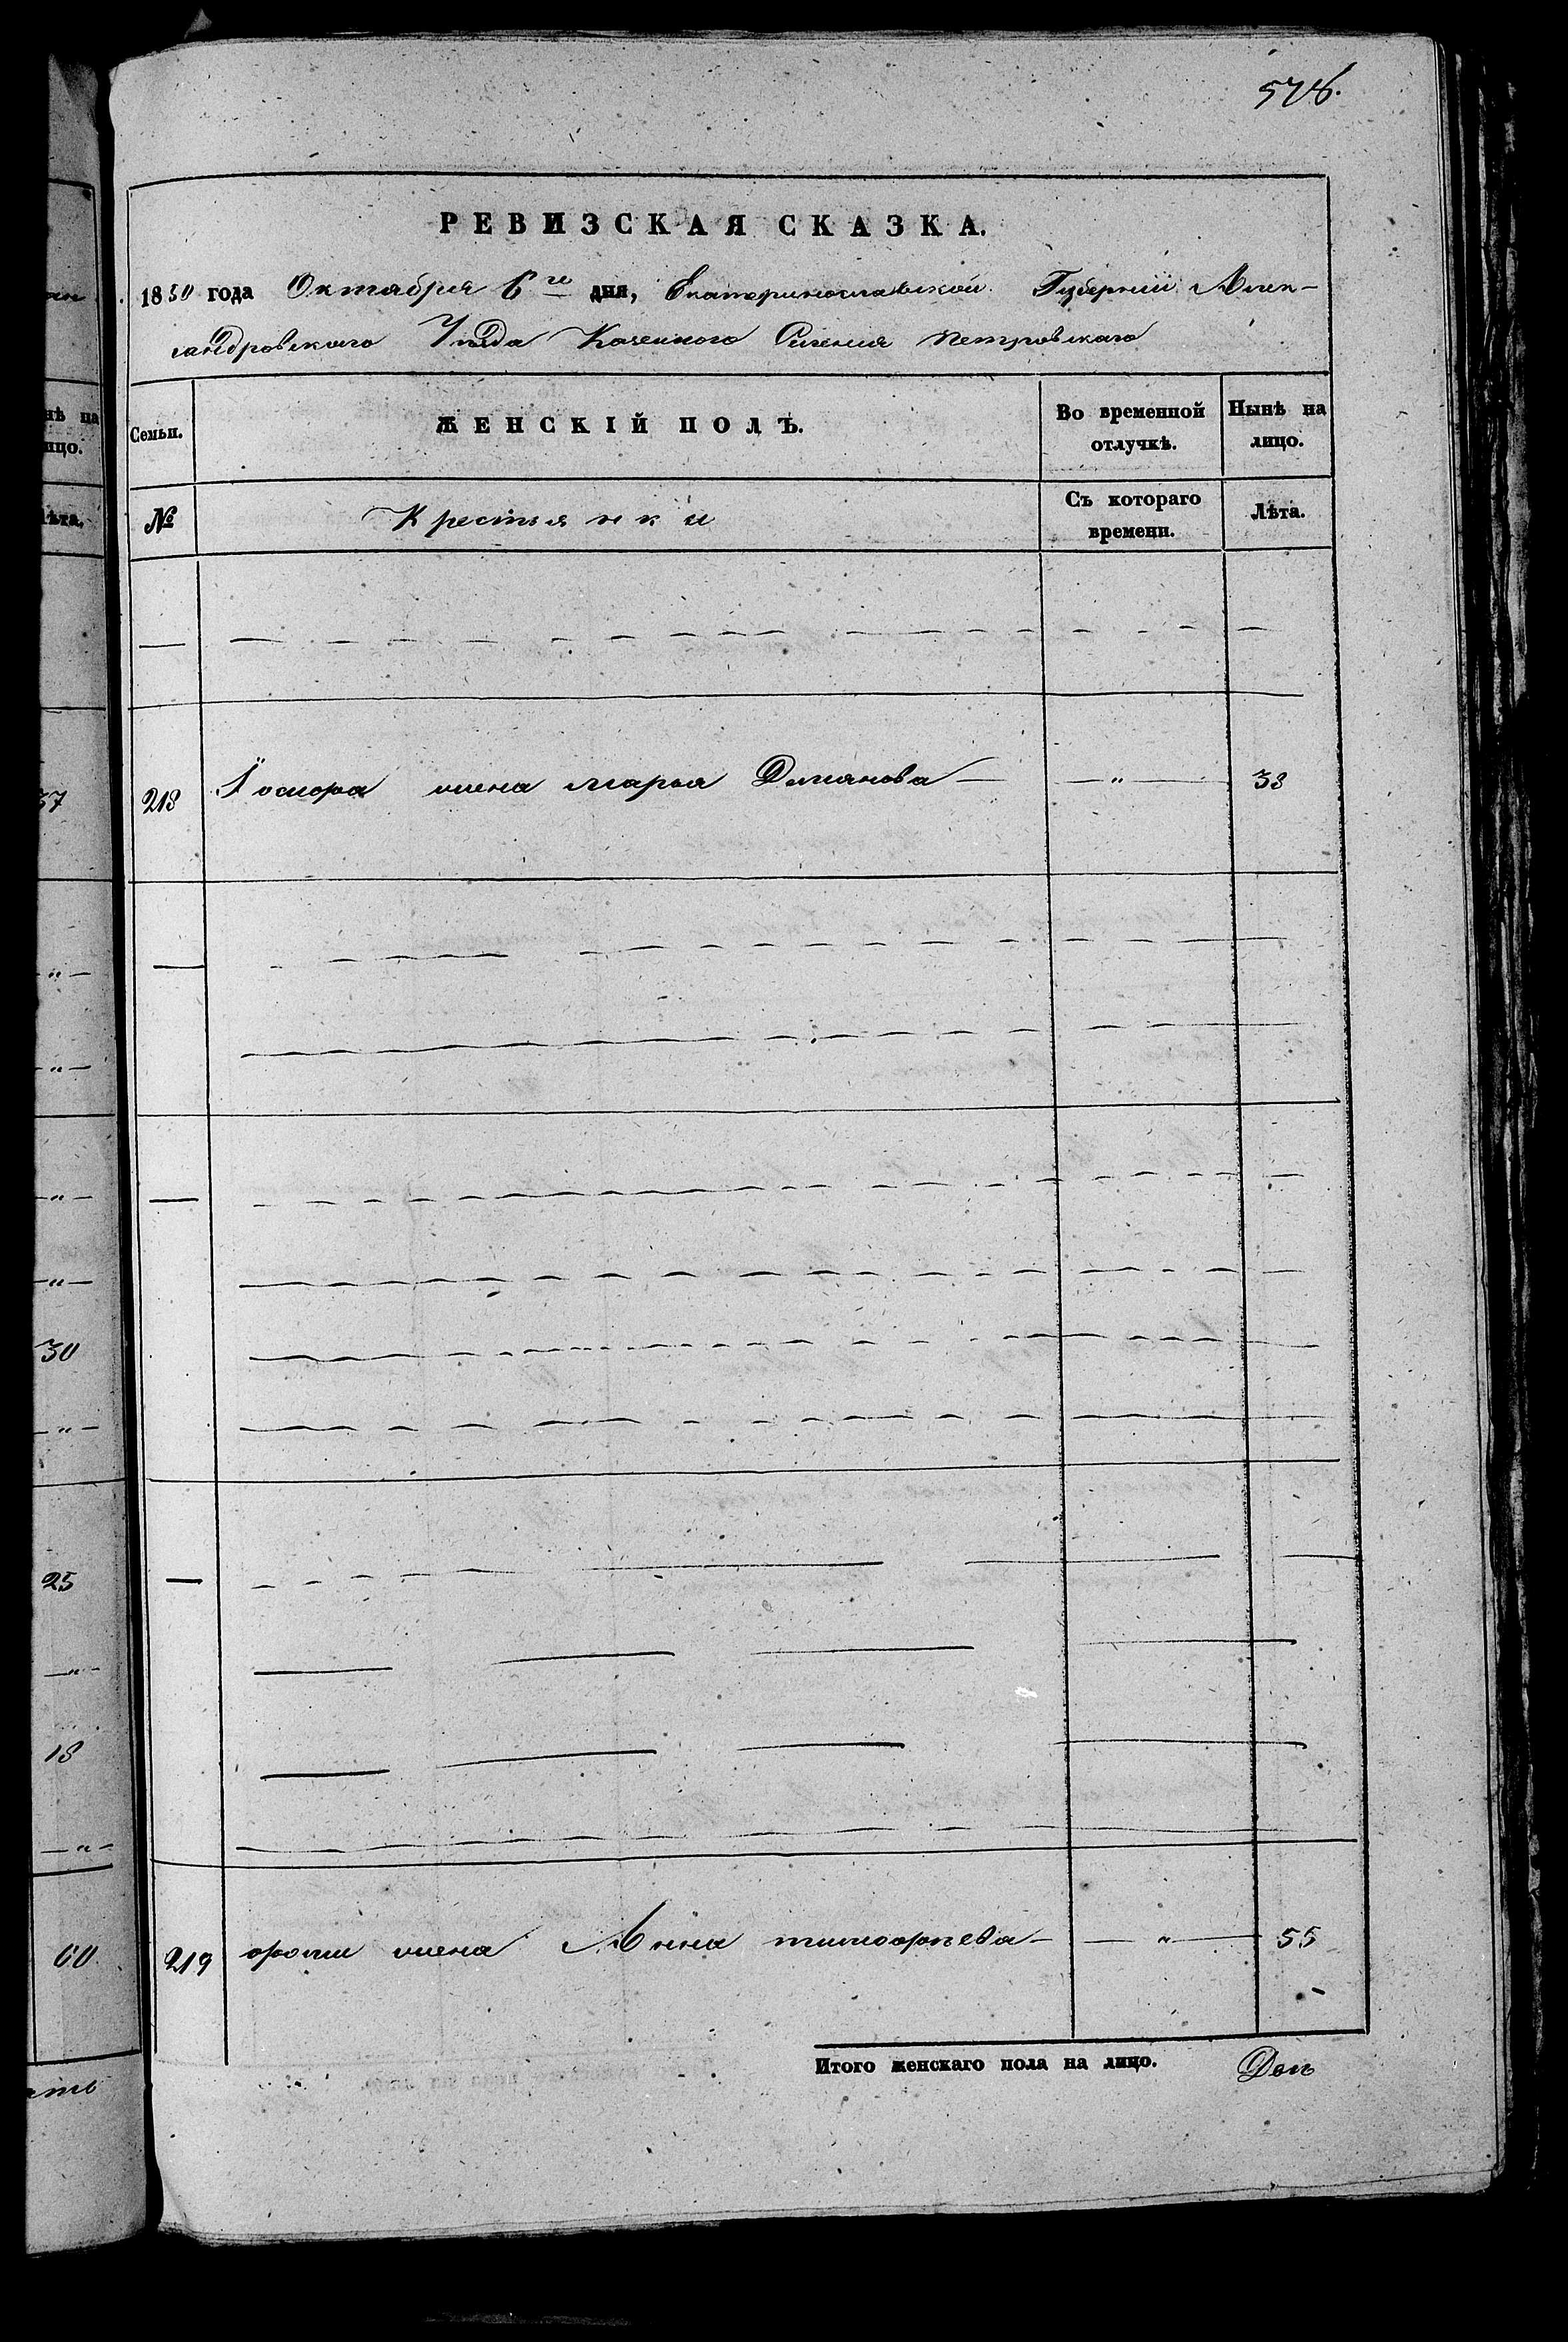 578.
РЕВИЗСКАЯ СКАЗКА.
1850 года Октября 6го дня, Екатеринославской Губернии Алек-
сандровского Уезда Казенного Селения Петровскаго
Семьи. ЖЕНСКІЙ ПОЛЪ. Во временной отлучкѣ. Нынѣ на лицо.
№ Крестьянки Съ котораго времени. Лѣта.
218 Іосифа жена Марья Демьянова — — " — 38
219 фомы жена Анна тимофѣева — — " — 55
Итого женскаго пола на лицо. Двѣ
нѣ на
ицо.
ѣта.
37
— " —
— " —
— " —
— " —
30
— " —
25
— " —
18
— " —
60
ать